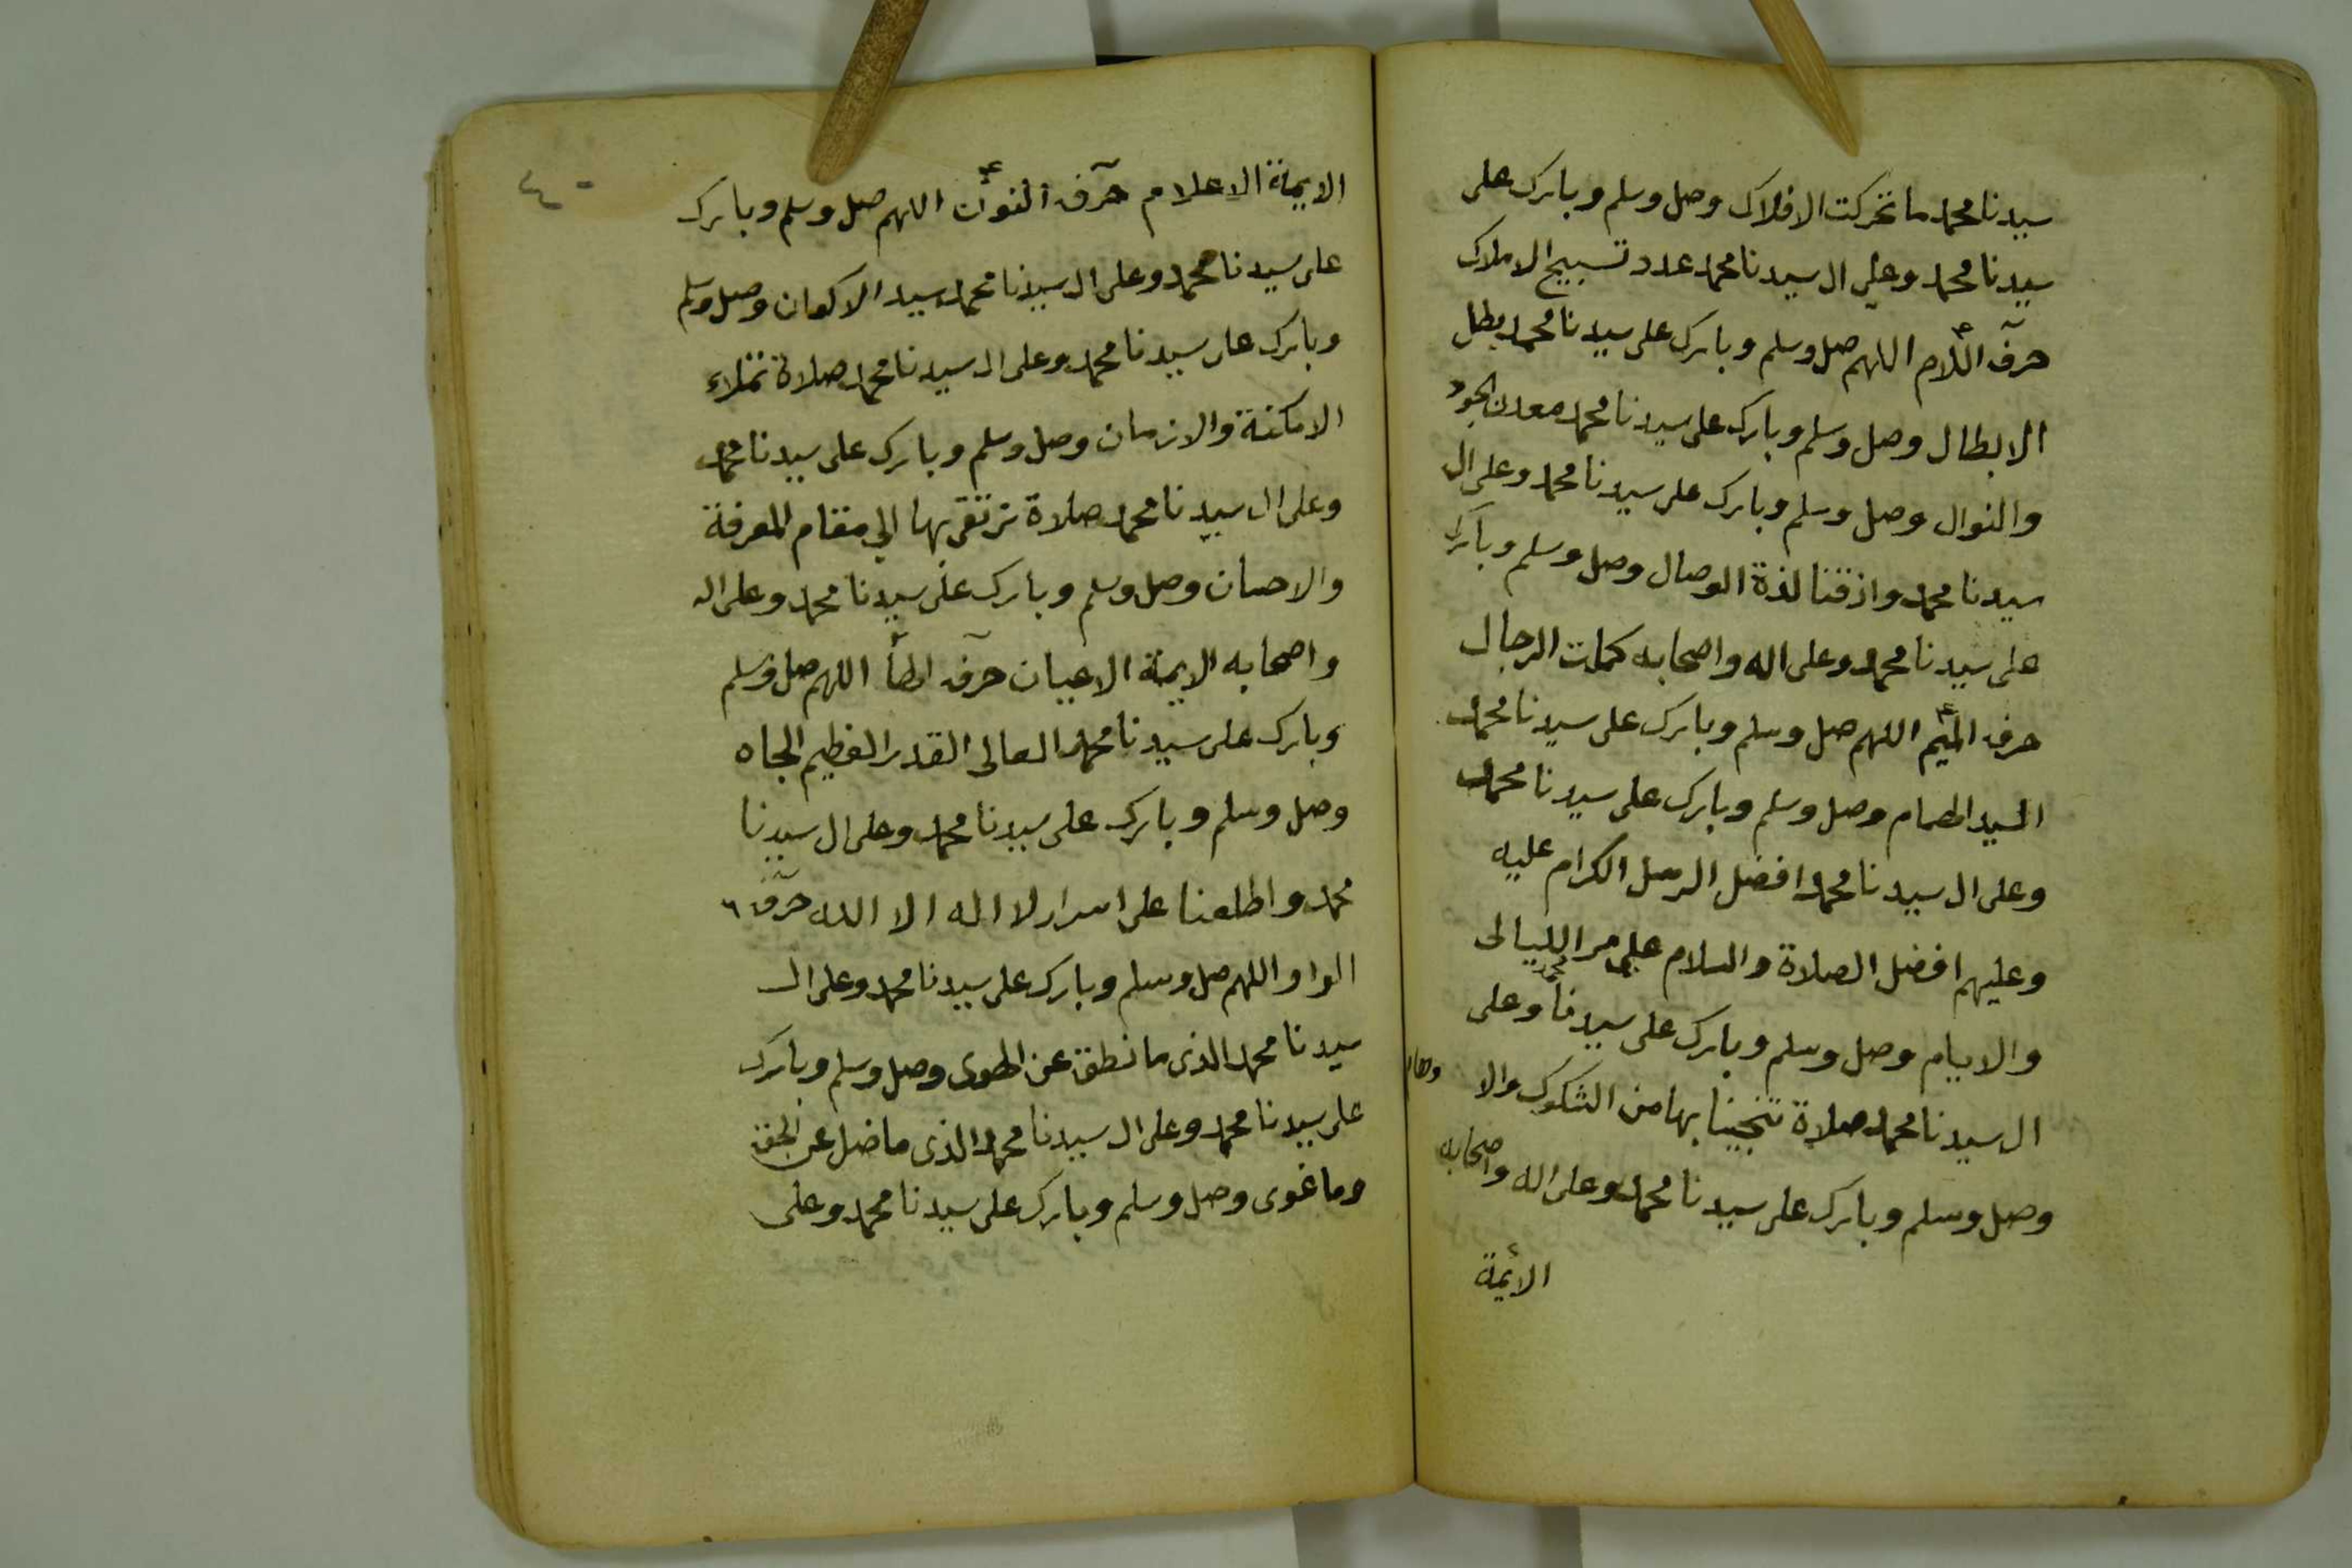 سيدنا محمد ما تحركت الافلاك وصل وسلم وبارك على
سيدنا محمد وعلى ال سيدنا محمد عدد تسبيح الاملاك
حرف اللام اللهم صل وسلم وبارك على سيدنا محمد بطل
الابطال وصل وسلم وبارك على سيدنا محمد معدن الجود
والنوال وصل وسلم وبارك على سيدنا محمد وعلى ال
سيدنا محمد واذقنا لذة الوصال وصل وسلم وبارك
على سيدنا محمد وعلى اله واصحابه كملت الرجال
حرف الميم اللهم صل وسلم وبارك على سيدنا محمد
السيد الهمام وصل وسلم وبارك على سيدنا محمد
وعلى ال سيدنا محمد افضل الرسل الكرام عليه
وعليهم افضل الصلاة والسلام على مر الليالى
والايام وصل وسلم وبارك على سيدنا محمد وعلى
ال سيدنا محمد صلاة تنجينا بها من الشكوك والا
وصل وسلم وبارك على سيدنا محمد وعلى اله واصحابه
الائمة
٤٠
الايمة الاعلام حرف النون اللهم صل وسلم وبارك
على سيدنا محمد وعلى ال سيدنا محمد سيد الاكوان وصل وسلم
وبارك على سيدنا محمد وعلى ال سيدنا محمد صلاة تملاء
الامكنة والازمان وصل وسلم وبارك على سيدنا محمد
وعلى ال سيدنا محمد صلاة نرتقى بها الى مقام المعرفة
والاحسان وصل وسلم وبارك على سيدنا محمد وعلى اله
واصحابه الايمة الاعيان حرف الهأ اللهم صل وسلم
وبارك على سيدنا محمد العالى القدر العظيم الجاه
وصل وسلم وبارك على سيدنا محمد وعلى ال سيدنا
محمد واطلعنا على اسرار لا اله الا الله حرف ٦
الواو اللهم صل وسلم وبارك على سيدنا محمد وعلى ال
سيدنا محمد الذى ما نطق عن الهوى وصل وسلم وبارك
على سيدنا محمد وعلى ال سيدنا محمد الذى ما ضل عن الحق
وما غوى وصل وسلم وبارك على سيدنا محمد وعلى